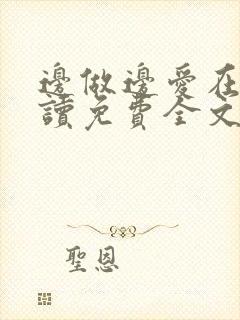 邊做邊愛在
讀免費全文
聖恩